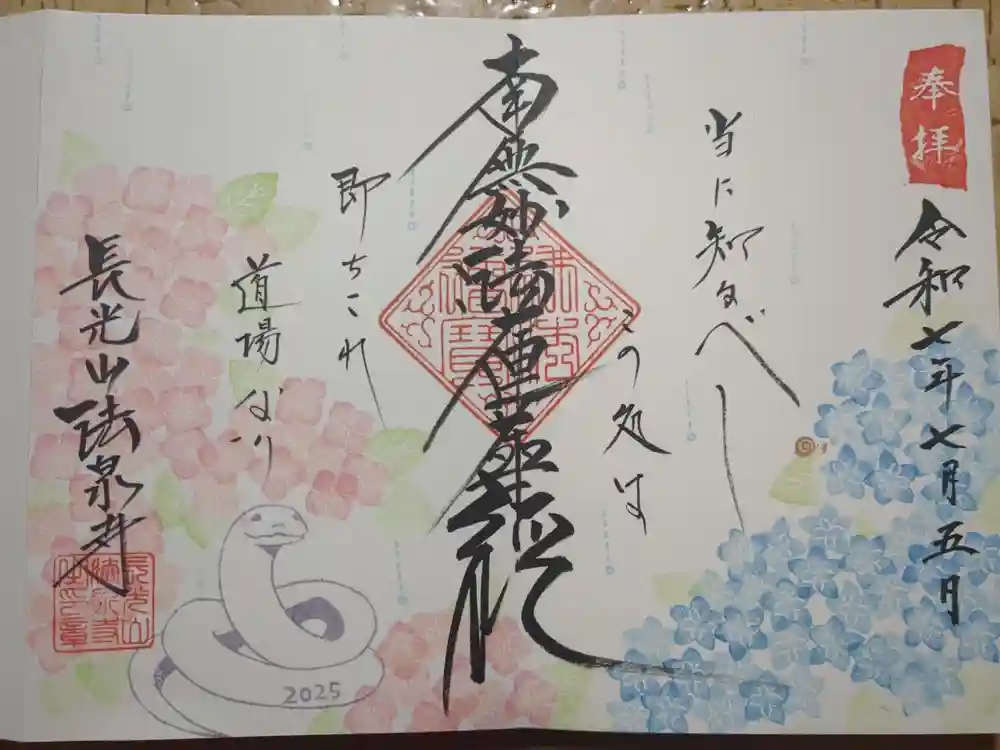 奉拝
令和七年七月五日
当に知るべし
この処は
南無妙法蓮華経
佛法僧寶
即ちこれ
道場なり
長光山法泉寺
2025